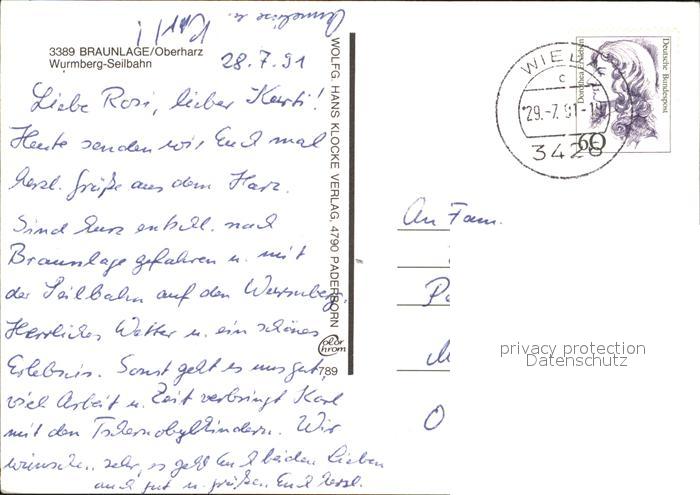 3389 BRAUNLAGE/Oberharz
Wurmberg-Seilbahn
28.7.91
Liebe Rosi, lieber Karti!
Heute senden wir Euch mal
herzl. Grüße aus dem Harz.
Sind kurz entschl. nach
Braunlage gefahren u. mit
der Seilbahn auf den Wurmberg.
Herrliches Wetter u. ein schönes
Erlebnis. Sonst geht es uns gut,
viel Arbeit u. Zeit verbringt Karl
mit den Tschernobylkindern. Wir
wünschen sehr, es geht Euch beiden Lieben
auch gut u. grüßen Euch herzl.
Anneliese u.
Karl
WOLFG. HANS KLOCKE VERLAG, 4790 PADERBORN
color
chrom
789
WIE
c
29.-7.91-1
3428
Deutsche Bundespost
60
An Fam.
privacy protection
Datenschutz